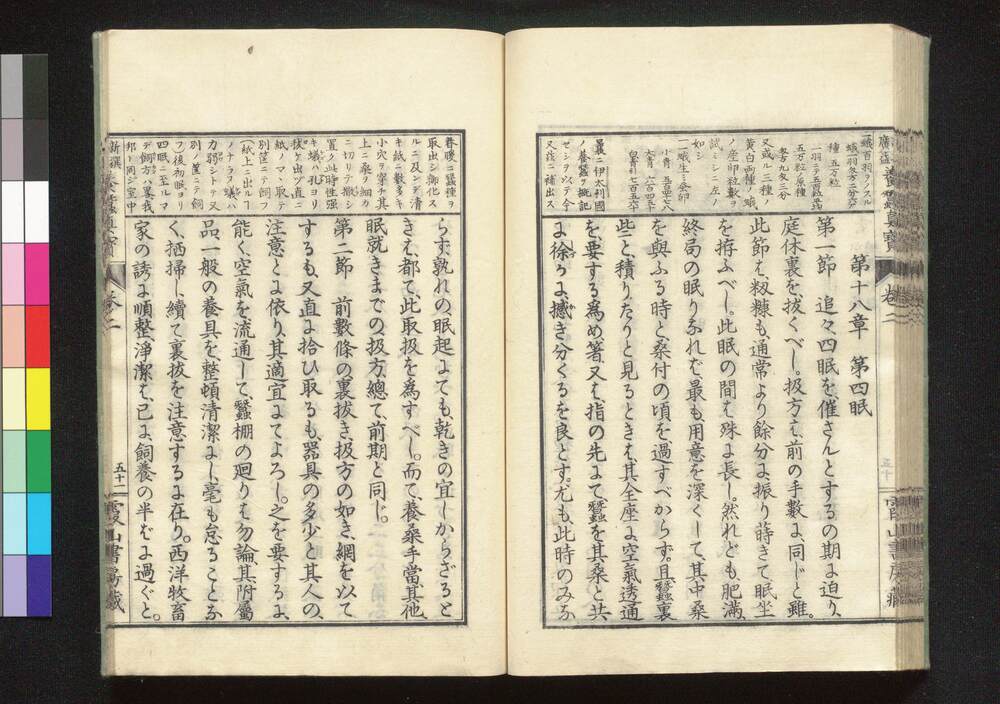 第十八章　第四眠
第一節　追々四眠を、催さんとするの期に迫り、
庭休裏を、抜くべし。扱方は、前の手数に、同じと雖、
此節は、籾糠も、通常より餘分に、振り蒔きて眠坐
を拵ふべし。此眠の間は、殊に長し。然れども、肥満、
終局の眠りなれば、最も、用意を深くして、其中桑
を與ふる時と、桑付の頃を過すべからず。且、蠶裏
些と、積りたりと見るときは、其全座に、空氣透通
を、要する為め、箸、又は、指の先にて、蠶を、其桑と共
に、徐かに、撼き分くるを良とす。尤も、此時のみな
らず、孰れの、眠起にても、乾きの宜しからざると
きは、都て、此取扱を為すべし。而て、養桑手當、其他、
眠就きまでの、扱方、總て、前期と同じ。
第二節　前數條の、裏抜き、扱方の如き、網を以て
するも、又直に拾ひ取るも、器具の多少と、其人の、
注意とに依り、其適宜にてよろし。之を要するに、
能く、空氣を、流通して、蠶棚の廻りは、勿論、其附屬
品、一般の養具を、整頓清潔にし、毫も怠ることな
く、掃掃し、續て裏抜を、注意するに在り。西洋牧畜
家の誘に、順整淨潔は、已に、飼養の半はに過ぐと。
一蛾百羽ヲノスル
種　五万粒
一羽ニテ五百粒
五万粒ノ原種
又或ル三種ノ
黄白両種ノ蛾
ノ産卵粒數ヲ
試ミシニ左ノ
如シ
一蛾生ミ登卵
小青　五百四十八
大青　六百四五十
白黄　七百五六十
曩ニ伊太利國
ノ養蠶ノ概記
セシヲ以テ今
又茲ニ補出ス
春暖ニ蠶種ヲ
取出シ揶化ス
ルニ及ンデ清
キ紙ニ數多キ
小穴ヲ穿チ其
上ニ桑ヲ細カ
ニ切リテ撒シ
置ク此時性强
キ蟻ハ孔ヨリ
拔ケ出ヅ直ニ
紙ノマヽ取テ
別筐ニテ飼フ
紙上ニ出ル丁
ノナラヌ蟻ハ
力弱シトテ又
別ノ筐ニテ飼
フ後初眠ヨリ
四眠ニ至ルマ
デ飼方ハ畧我
邦ト同シ室中
新撰養蠶眞寶　卷二　五十一　霞山書房藏
卷二　五十　霞山書房藏